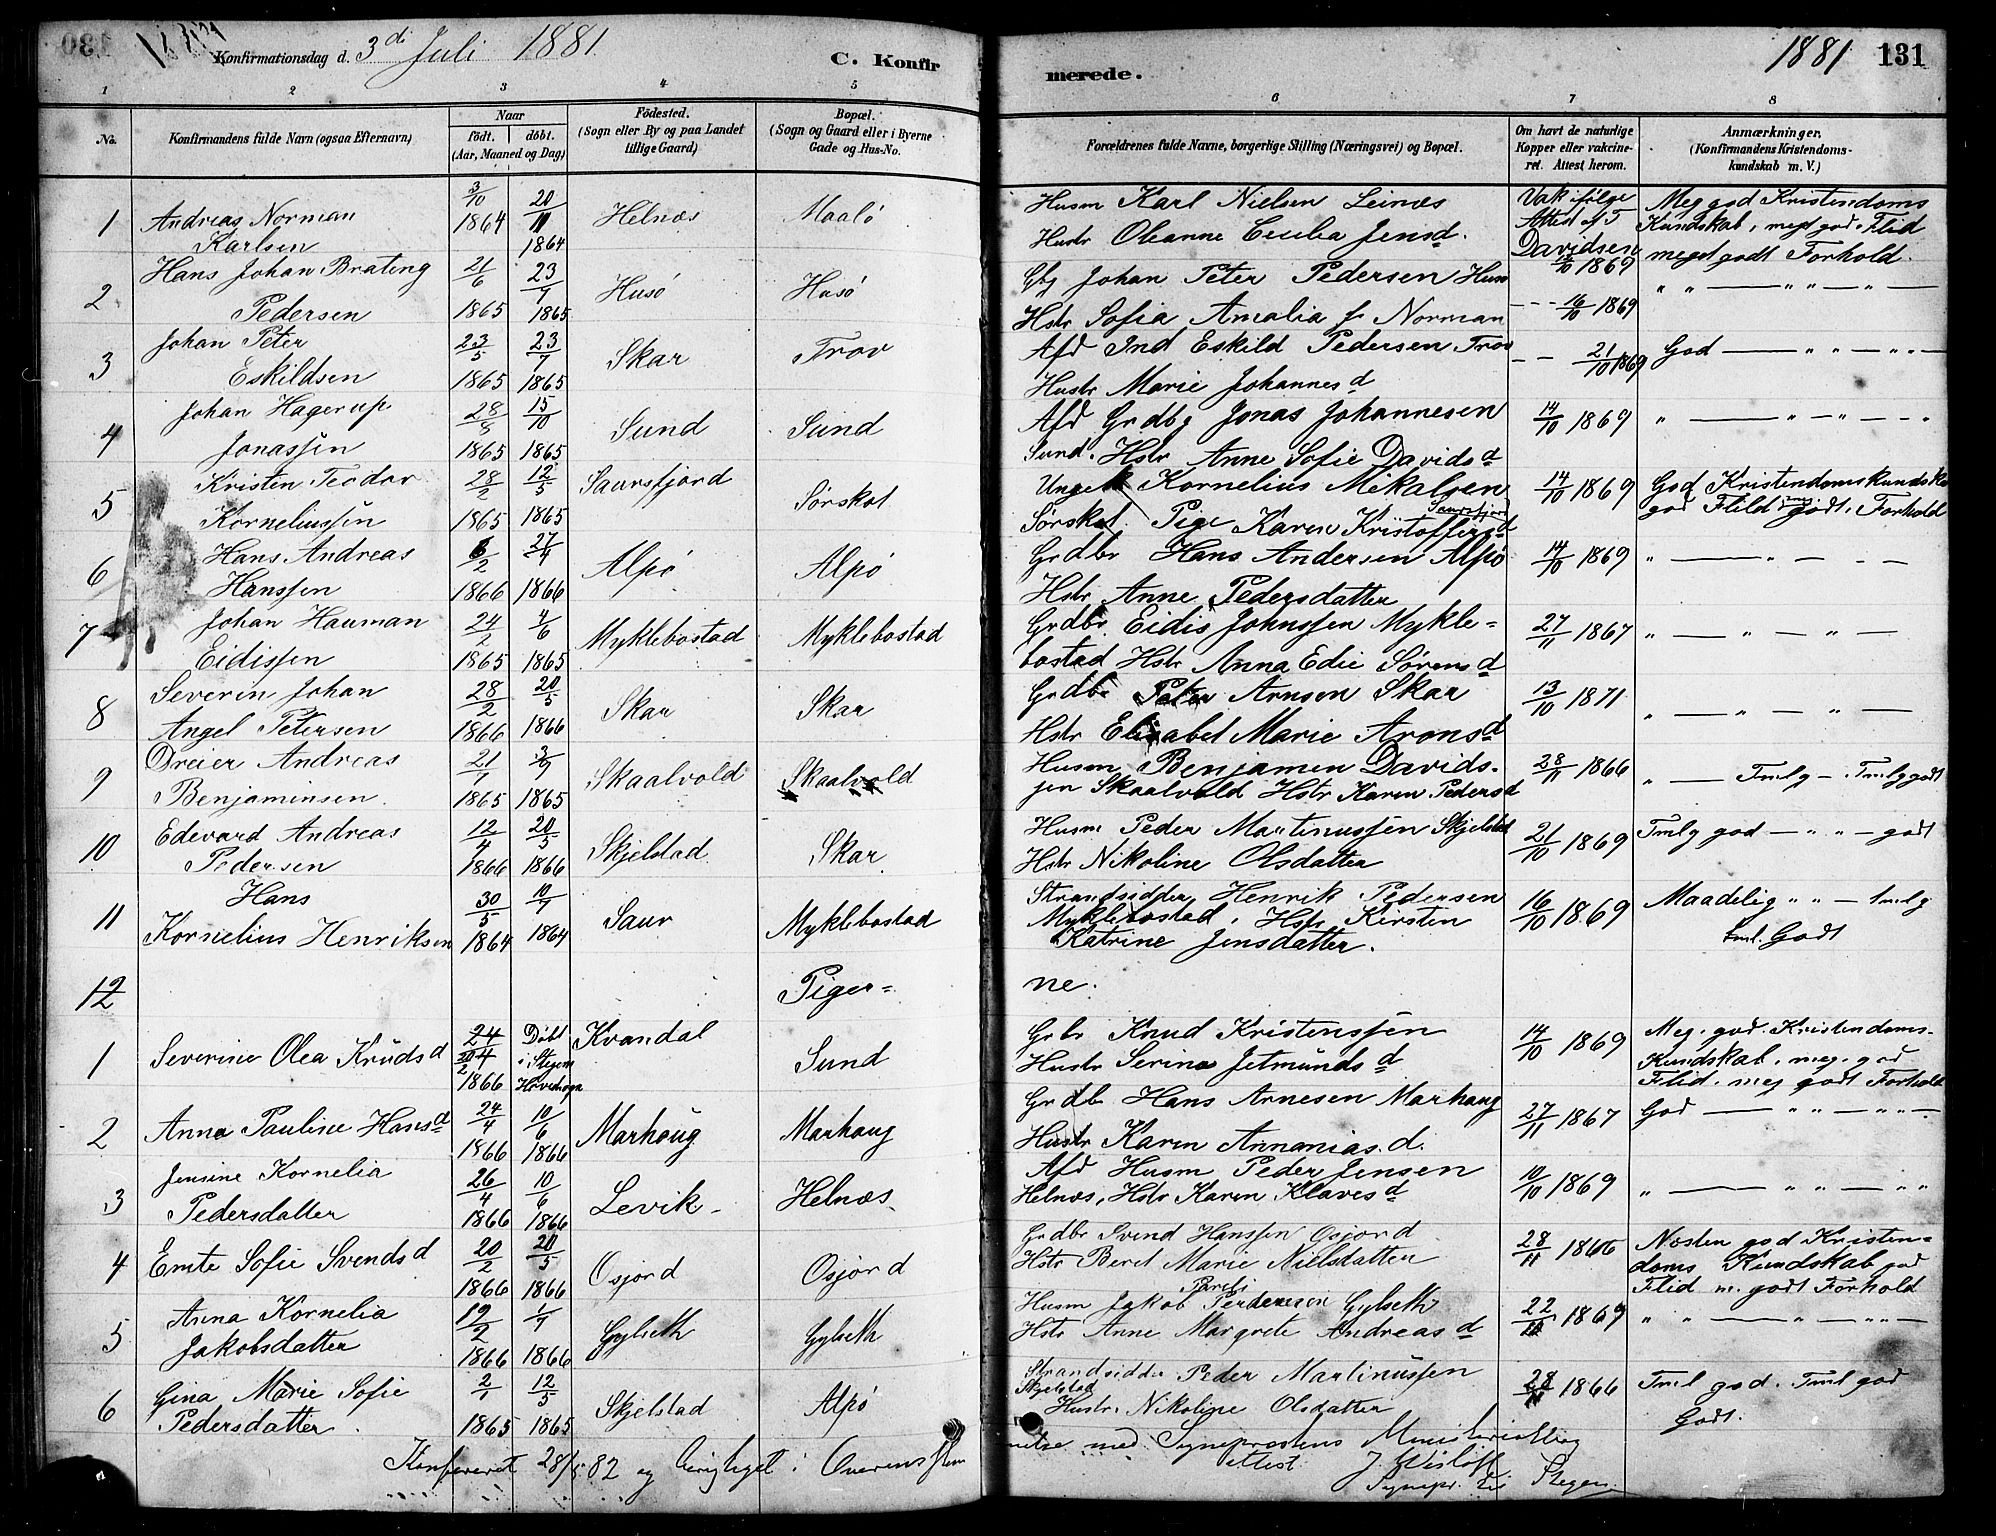 Konfirmationsdag d. 3di Juli 1881
C. Konfirmerede.
1881 131
1 2 3 4 5 6 7 8
No.
Konfirmandens fulde Navn (ogsaa Efternavn)
Naar födt. döbt. (Aar, Maaned og Dag)
Födested. (Sogn eller By og paa Landet tillige Gaard)
Bopæl. (Sogn og Gaard eller i Byerne Gade og Hus-No.
Forældrenes fulde Navne, borgerlige Stilling (Næringsvei) og Bopæl.
Om havt de naturlige Kopper eller vakcineret. Attest herom.
Anmærkninger. (Konfirmandens Kristendomskundskab m. V.)
1 Andreas Norman Karlsen 3/10 1864 20/11 1864 Helnæs Maalö
Husm Karl Nielsen Leinæs
Hustr Oleanne Cecilia Jensd.
Vak ifølge Attest af T Davidsen /10 1869
Meg god Kristendoms Kundskab, meget god Flid meget godt Forhold.
2 Hans Johan Brating Pedersen 21/6 1865 23/7 1865 Husö Husö
Gbr Johan Peter Pedersen Husö
Hstr Sofia Amalia f. Norman
- - - 16/10 1869
" " — " " — " —
3 Johan Peter Eskildsen 23/5 1865 23/7 1865 Skar Trov
Afd Ind Eskild Pedersen Trov
Hustr Marie Johannesd
- - 21/10 1869
God — " " — " " —
4 Johan Hagerup Jonassen 28/8 1865 15/10 1865 Sund Sund
Afd Grdbr Jonas Johannesen
Sund. Hstr Anne Sofie Davidsd
14/10 1869
" — " — " — "
5 Kristen Teodor Korneliussen 28/2 1865 12/5 1865 Saursfjord Sørskot
Ungk Kornelius Mikalsen
Sørskot. Pige Karen Kristoffersd Saursfjord
14/10 1869
God Kristendomskundskab god Flid meg. godt. Forhold
6 Hans Andreas Hanssen 6/2 1866 27/4 1866 Alpö Alpö
Grdbr Hans Andersen Alpö
Hstr Anne Pedersdatter
14/10 1869
" — " — - —
7 Johan Hauman Eidissen 24/2 1865 4/6 1865 Myklebostad Myklebostad
Grdbr Eidis Johnssen Mykle=
bostad Hstr Anna Edie Sørensd
27/11 1867
" — " — " —
8 Severin Johan Angel Petersen 28/2 1866 20/5 1866 Skar Skar
Grdbr Peter Arnsen Skar
Hstr Elisabet Marie Aronsd
13/10 1871
" — " — " —
9 Dreier Andreas Benjaminsen. 21/1 1865 3/9 1865 Skaalvold Skaalvold
Husm Benjamin Davids-
sen Skaalvold Hstr Karen Pedersd
28/11 1866
" — Tmlg — Tmlg godt
10 Edevard Andreas Pedersen 12/4 1866 20/5 1866 Skjelstad Skar
Husm Peder Martinussen Skjelstad
Hstr Nikoline Olsdatter
21/10 1869
Tmlg god — " " — godt
11 Hans Kornelius Henriksen 30/5 1864 10/7 1864 Saur Myklebostad
Strandsidder Henrik Pedersen
Myklebostad, Hstr Kirsten
Katrine Jensdatter.
16/10 1869
Maadelig " " — tmlg
tml. Godt
12
Piger=
ne.
1 Severine Olea Knudsd 24/4 1866 Döbt i Stegen Kvandal Sund
Grbr Knud Kristenssen
Hustr Serina Jetmundsd
14/10 1869
Meg. god. Kristendoms-
Kundskab, meg. god
Flid. meg godt Forhold
2 Anna Pauline Hansd 24/4 1866 10/6 1866 Marhaug Marhaug
Grdb Hans Arnesen Marhaug
Hustr Karen Annaniasd.
27/11 1867
God — " " — " " —
3 Jensine Kornelia Pedersdatter 26/4 1866 10/6 1866 Levik Helnæs
Afd Husm Peder Jensen
Helnæs, Hstr Karen Klavesd
10/10 1869
" — " — " — " "
4 Emte Sofie Svendsd 20/2 1866 20/5 1866 Osjord Osjord
Grdbr Svend Hanssen Osjord
Hstr Beret Marie Nielsdatter
28/11 1866
Næsten god Kristen=
doms Kundskab god
Flid m. godt Forhold
5 Anna Kornelia Jakobsdatter 19/2 1866 1/7 1866 Gylseth Gylseth
Husm Jakob Pedersen Gylseth
Hstr Anne Margrete Andreasd
22/10 1869
" " — " — " " —
6 Gina Marie Sofie Pedersdatter 2/1 1865 12/5 1865 Skjelstad Alpö
Strandsidder Peder Martinussen
Skjelstad
Hustr. Nikoline Olsdatter
28/11 1866
Tml god. Tml god
Godt.
Konfereret 28/5 82 og berigtiget i Overensstem
melse med Sogneprestens Ministerialbog
Attest J. Wisløff
Sognepr. til Stegen.